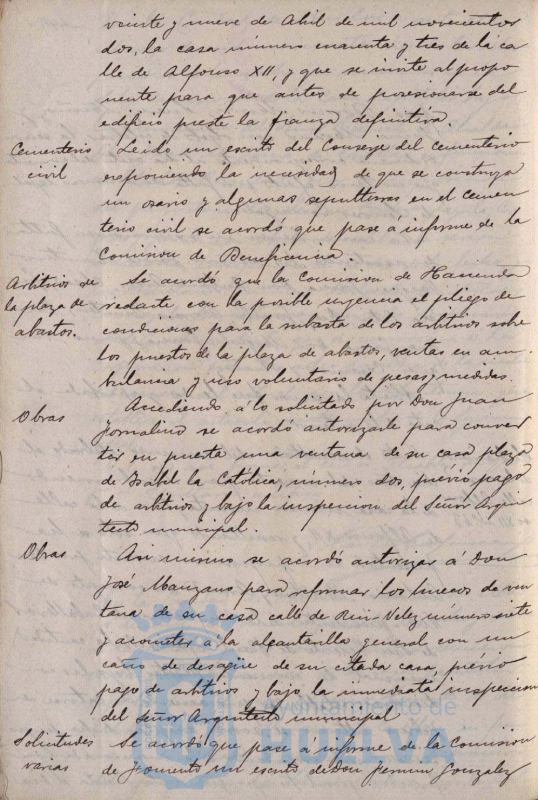 veinte y nueve de Abril de mil novecientos
dos, la casa número cuarenta y tres de la ca
lle de Alfonso XII, y que se invite al propo
nente para que antes de posesionarse del
edificio preste la fianza definitiva.
Cementerio civil
Leido un escrito del Conserje del cementerio
exponiendo la necesidad de que se construya
un osario y algunas sepulturas en el cemen
terio civil se acordó que pase á informe de la
Comision de Beneficencia.
Arbitrios de la plaza de abastos.
Se acordó que la Comision de Hacienda
redacte con la posible urgencia el pliego de
condiciones para la subasta de los arbitrios sobre
los puestos de la plaza de abastos, ventas en am-
bulancia y uso voluntario de pesas y medidas.
Obras
Accediendo á lo solicitado por Don Juan
se acordó autorizarle para conver
tir en puerta una ventana de su casa plaza
de Isabel la Católica, número dos, previo pago
de arbitrios y bajo la inspeccion del Señor Arqui
tecto municipal.
Obras
Asi mismo se acordó autorizar á Don
José Manzano para reformar los huecos de ven
tana de su casa calle de Rui-Velez número siete
y acometer á la alcantarilla general con un
caño de desagüe de su citada casa, prévio
pago de arbitrios y bajo la inmediata inspeccion
del Señor Arquitecto municipal
Solicitudes varias
Se acordó que pase á informe de la Comision
de Fomento un escrito de Don Fermin Gonzalez
Ayuntamiento de
HUELVA